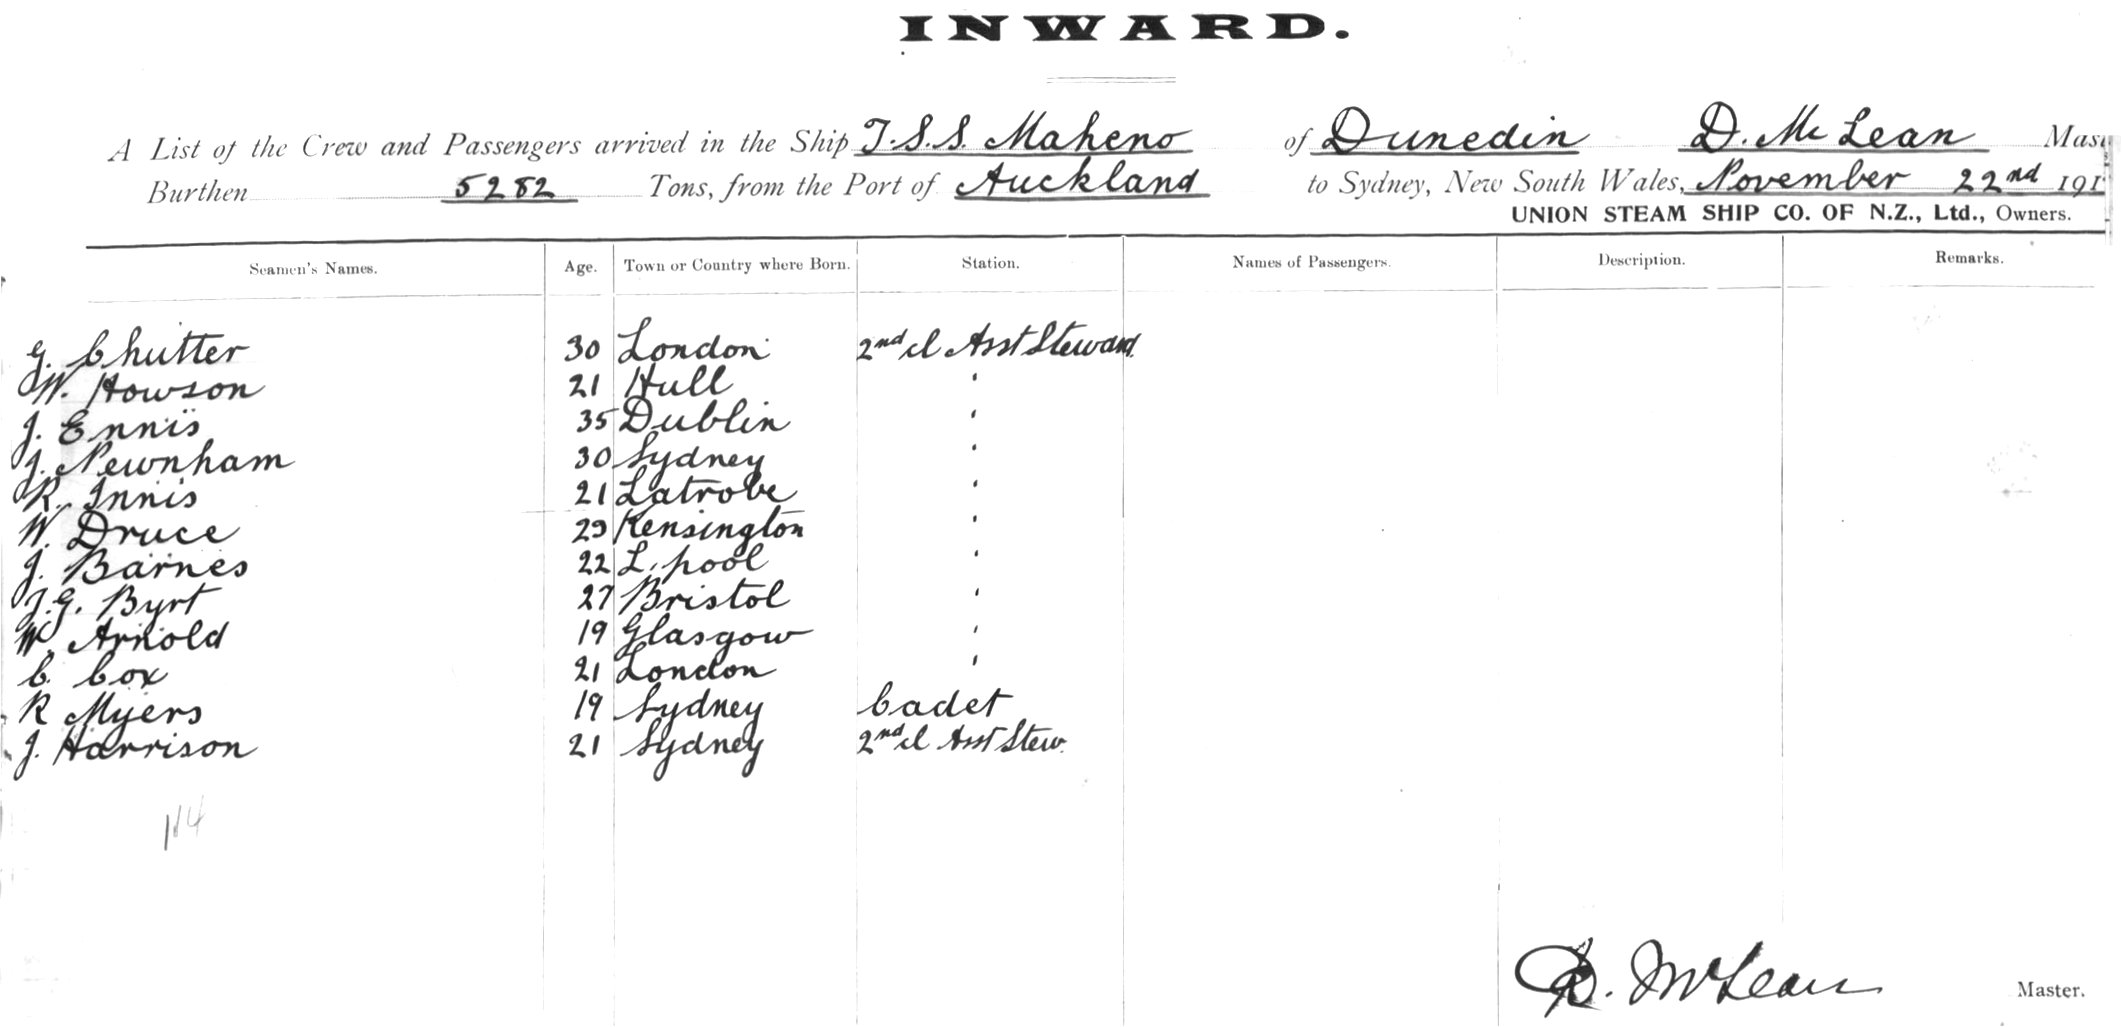 INWARD.
A List of the Crew and Passengers arrived in the Ship T.S.S. Maheno of Dunedin D. McLean Mas
Burthen 5282 Tons, from the Port of Auckland to Sydney, New South Wales, November 22nd 191
UNION STEAM SHIP CO. OF N.Z., Ltd., Owners.
Seamen's Names. Age. Town or Country where Born. Station. Names of Passengers. Description. Remarks.
G. Chutter 30 London 2nd cl Asst Steward
W. Howson 21 Hull '
J. Ennis 35 Dublin '
J. Newnham 30 Sydney '
R. Innis 21 Latrobe '
W. Druce 29 Kensington '
J. Barnes 22 L.pool '
J.G. Byrt 27 Bristol '
W. Arnold 19 Glasgow '
C. Cox 21 London '
R Myers 19 Sydney Cadet
J. Harrison 21 Sydney 2nd cl Asst Stew.
D. McLean Master.